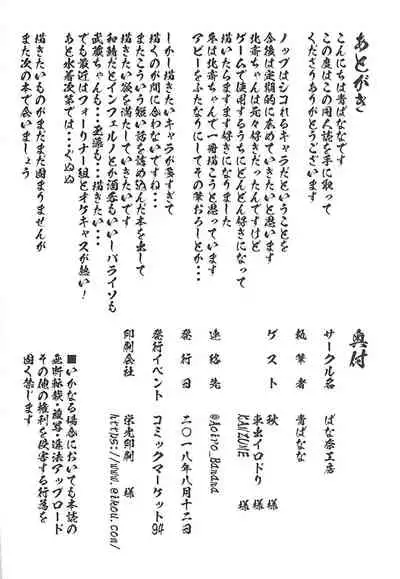 あとがき
こんにちは青ばななです
この度はこの同人誌を手に取って
くださりありがとうございます
ノッブはシコれるキャラだということを
今後は定期的に広めていきたいと思います
北斎ちゃんは元々好きだったんですけど
ゲームで使用するうちにどんどん好きになって
描いたらますます好きになりました
本は北斎ちゃんで一冊描こうと思っています
アビーをふたなりにしてその筆おろしとか・・・
しかし描きたいキャラが多すぎて
描くのが間に合わないですね・・・
またこういう短い話を詰め込んだ本を出して
描きたい欲を満たしていきたいです
和鯖だとインフェルノとか酒呑もいいしパライソも
武蔵ちゃんも・・玉藻も・・描きたい・・・
でも最近はフォーリナー組とオケキャスが熱い!
あと水着次第では・・・くぬぬ
描きたいものがまだまだ固まりませんが
また次の本で会いましょう
奥付
サークル名 ばな奈工房
執筆者 青ばなな
ゲスト 秋 様
東虫イロドリ 様
KANZUME 様
連絡先 @Aoiro_Banana
発行日 二〇一八年八月十二日
発行イベント コミックマーケット94
印刷会社 栄光印刷 様
https://www.eikou.com/
■いかなる場合においても本誌の
無断転載・複写・違法アップロード
その他の権利を侵害する行為を
固く禁じます